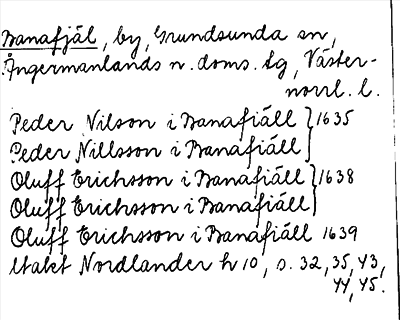 Banafjäl, by, Grundsunda sn,
Ångermanlands n. doms. tg, Väster-
norrl. l.
Peder Nilson i Banafiäll } 1635
Peder Nillsson i Banafiäll
Oluff Erichsson i Banafiäll } 1638
Oluff Erichsson i Banafiäll
Oluff Erichsson i Banafiäll 1639
Nordlander h 10, s. 32, 35, 43,
44, 45.